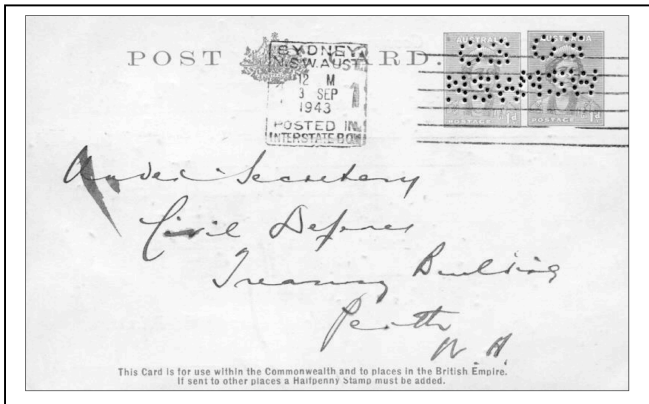 POST CARD.
SYDNEY
N.S.W. AUST
12 M
3 SEP
1943
POSTED IN
INTERSTATE BOX
AUSTRALIA
POSTAGE
POSTAGE
Under Secretary
Civil Defence
Treasury Building
Perth
W.A.
This Card is for use within the Commonwealth and to places in the British Empire.
If sent to other places a Halfpenny Stamp must be added.